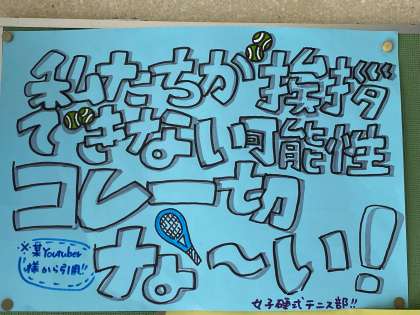 私たちが挨拶
できない可能性
コレ一切
な〜い!
※某Youtuber
様から引用!!
女子硬式テニス部!!